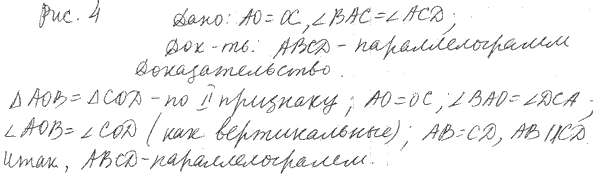 Рис. 4
Дано: AO = OC, ∠BAC = ∠ACD;
Док-ть: ABCD - параллелограмм
Доказательство.
△AOB = △COD - по II признаку; AO = OC; ∠BAO = ∠DCA;
∠AOB = ∠COD (как вертикальные); AB = CD, AB || CD
Итак, ABCD - параллелограмм.